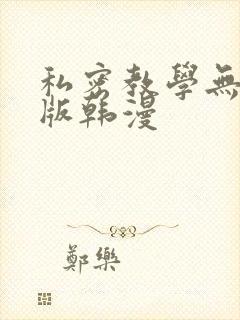 私密教學無
版韩漫
鄭樂